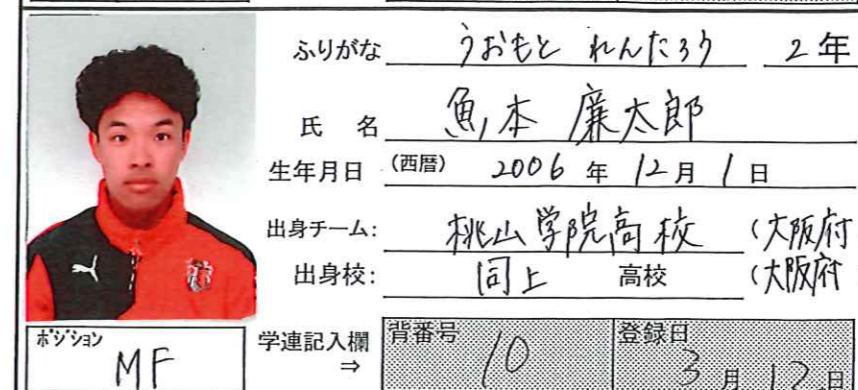 ふりがな うおもと れんたろう 2年
氏 名 魚本 廉太郎
生年月日 (西暦) 2006 年 12月 1 日
出身チーム: 桃山学院高校 (大阪府
出身校: 同上 高校 (大阪府
ポジション MF
学連記入欄 ⇒ 背番号 10 登録日 3 月 12 日